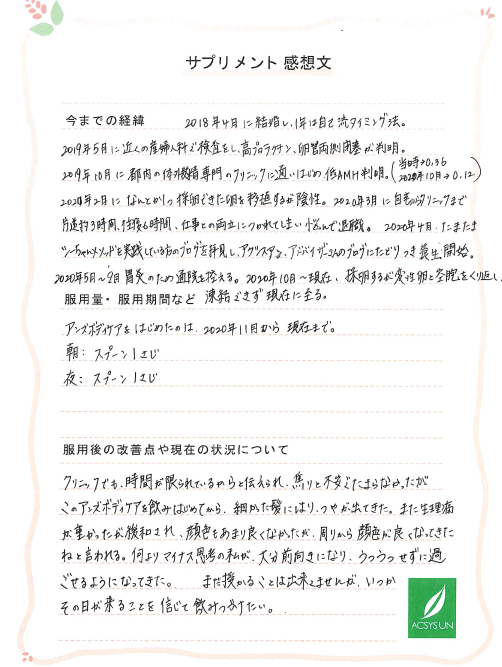 サプリメント 感想文
今までの経緯　2018年4月に結婚し、1年は自己流タイミング法。
2019年5月に近くの産婦人科で検査をし、高プロラクチン、卵管両側閉塞が判明。
2019年10月に都内の体外受精専門のクリニックに通いはじめ、低AMH判明。(当時→0.36 2020年10月→0.12)
2020年2月になんとか1つ採卵できた卵を移植するが陰性。2020年3月に自宅からクリニックまで
片道約3時間、往復6時間、仕事との両立につかれてしまい悩んで退職。2020年4月、たまたま
ツーちゃんメソッドを実践している方のブログを拝見し、アクシスアン、アドバイザーさんのブログにたどりつき養生開始。
2020年5月〜9月 胃炎のため通院を控える。2020年10月〜現在、採卵するが変性卵と空胞をくり返し、
服用量・服用期間など　凍結できず現在に至る。
アンズボディケアをはじめたのは、2020年11月から現在まで。
朝：スプーン1さじ
夜：スプーン1さじ
服用後の改善点や現在の状況について
クリニックでも、時間が限られているからと伝えられ、焦りと不安でたまらなかったが
このアンズボディケアを飲みはじめてから、細かった髪にはり、つやが出てきた。また生理痛
が重かったが緩和され、顔色もあまり良くなかったが、周りから顔色が良くなってきた
ねと言われる。何よりマイナス思考の私が、大分前向きになり、うつうつせずに過
ごせるようになってきた。　まだ授かることは出来てませんが、いつか
その日が来ることを信じて飲みつづけたい。
ACSYSUN